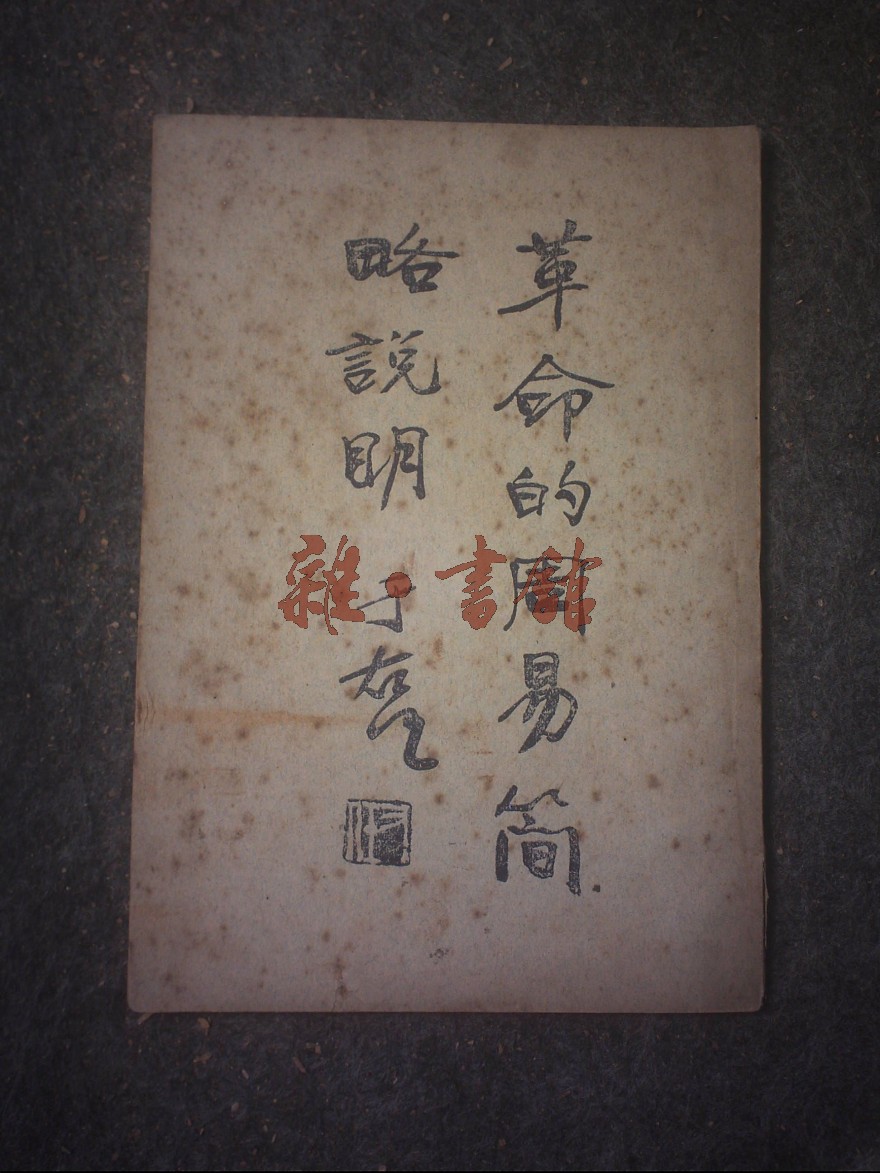 革命的周易簡
略說明 于右任
雜·書館